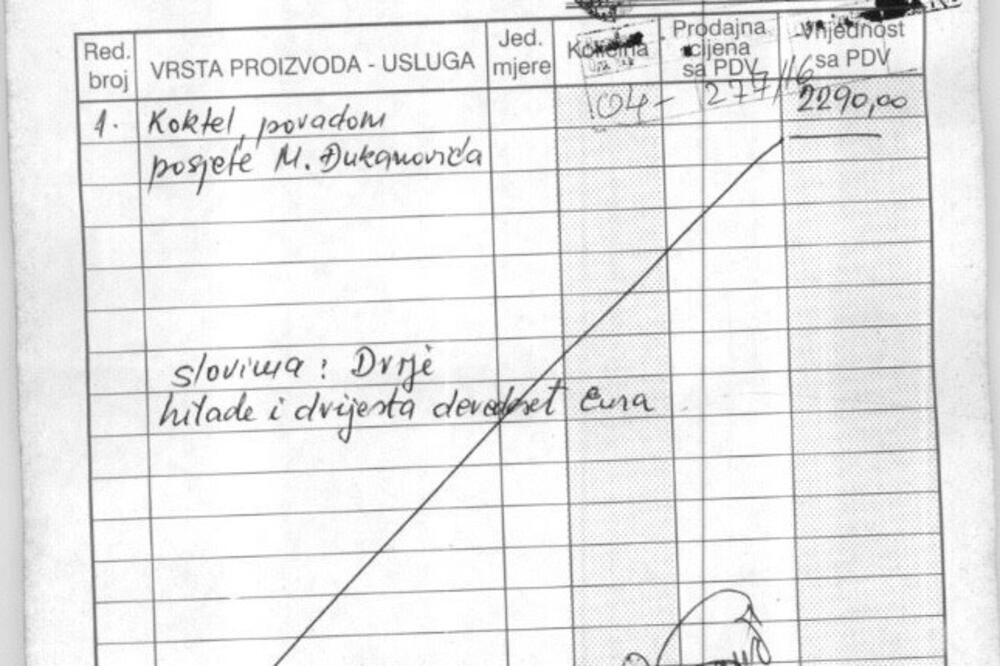 Red. broj
VRSTA PROIZVODA - USLUGA
Jed. mjere
Količina
Prodajna cijena sa PDV
Vrijednost sa PDV
04- 277/16
1. Koktel, povadom 2290,00
posjete M. Đukanovića
slovima: Dvije
hilade i dvijesta devedeset eura